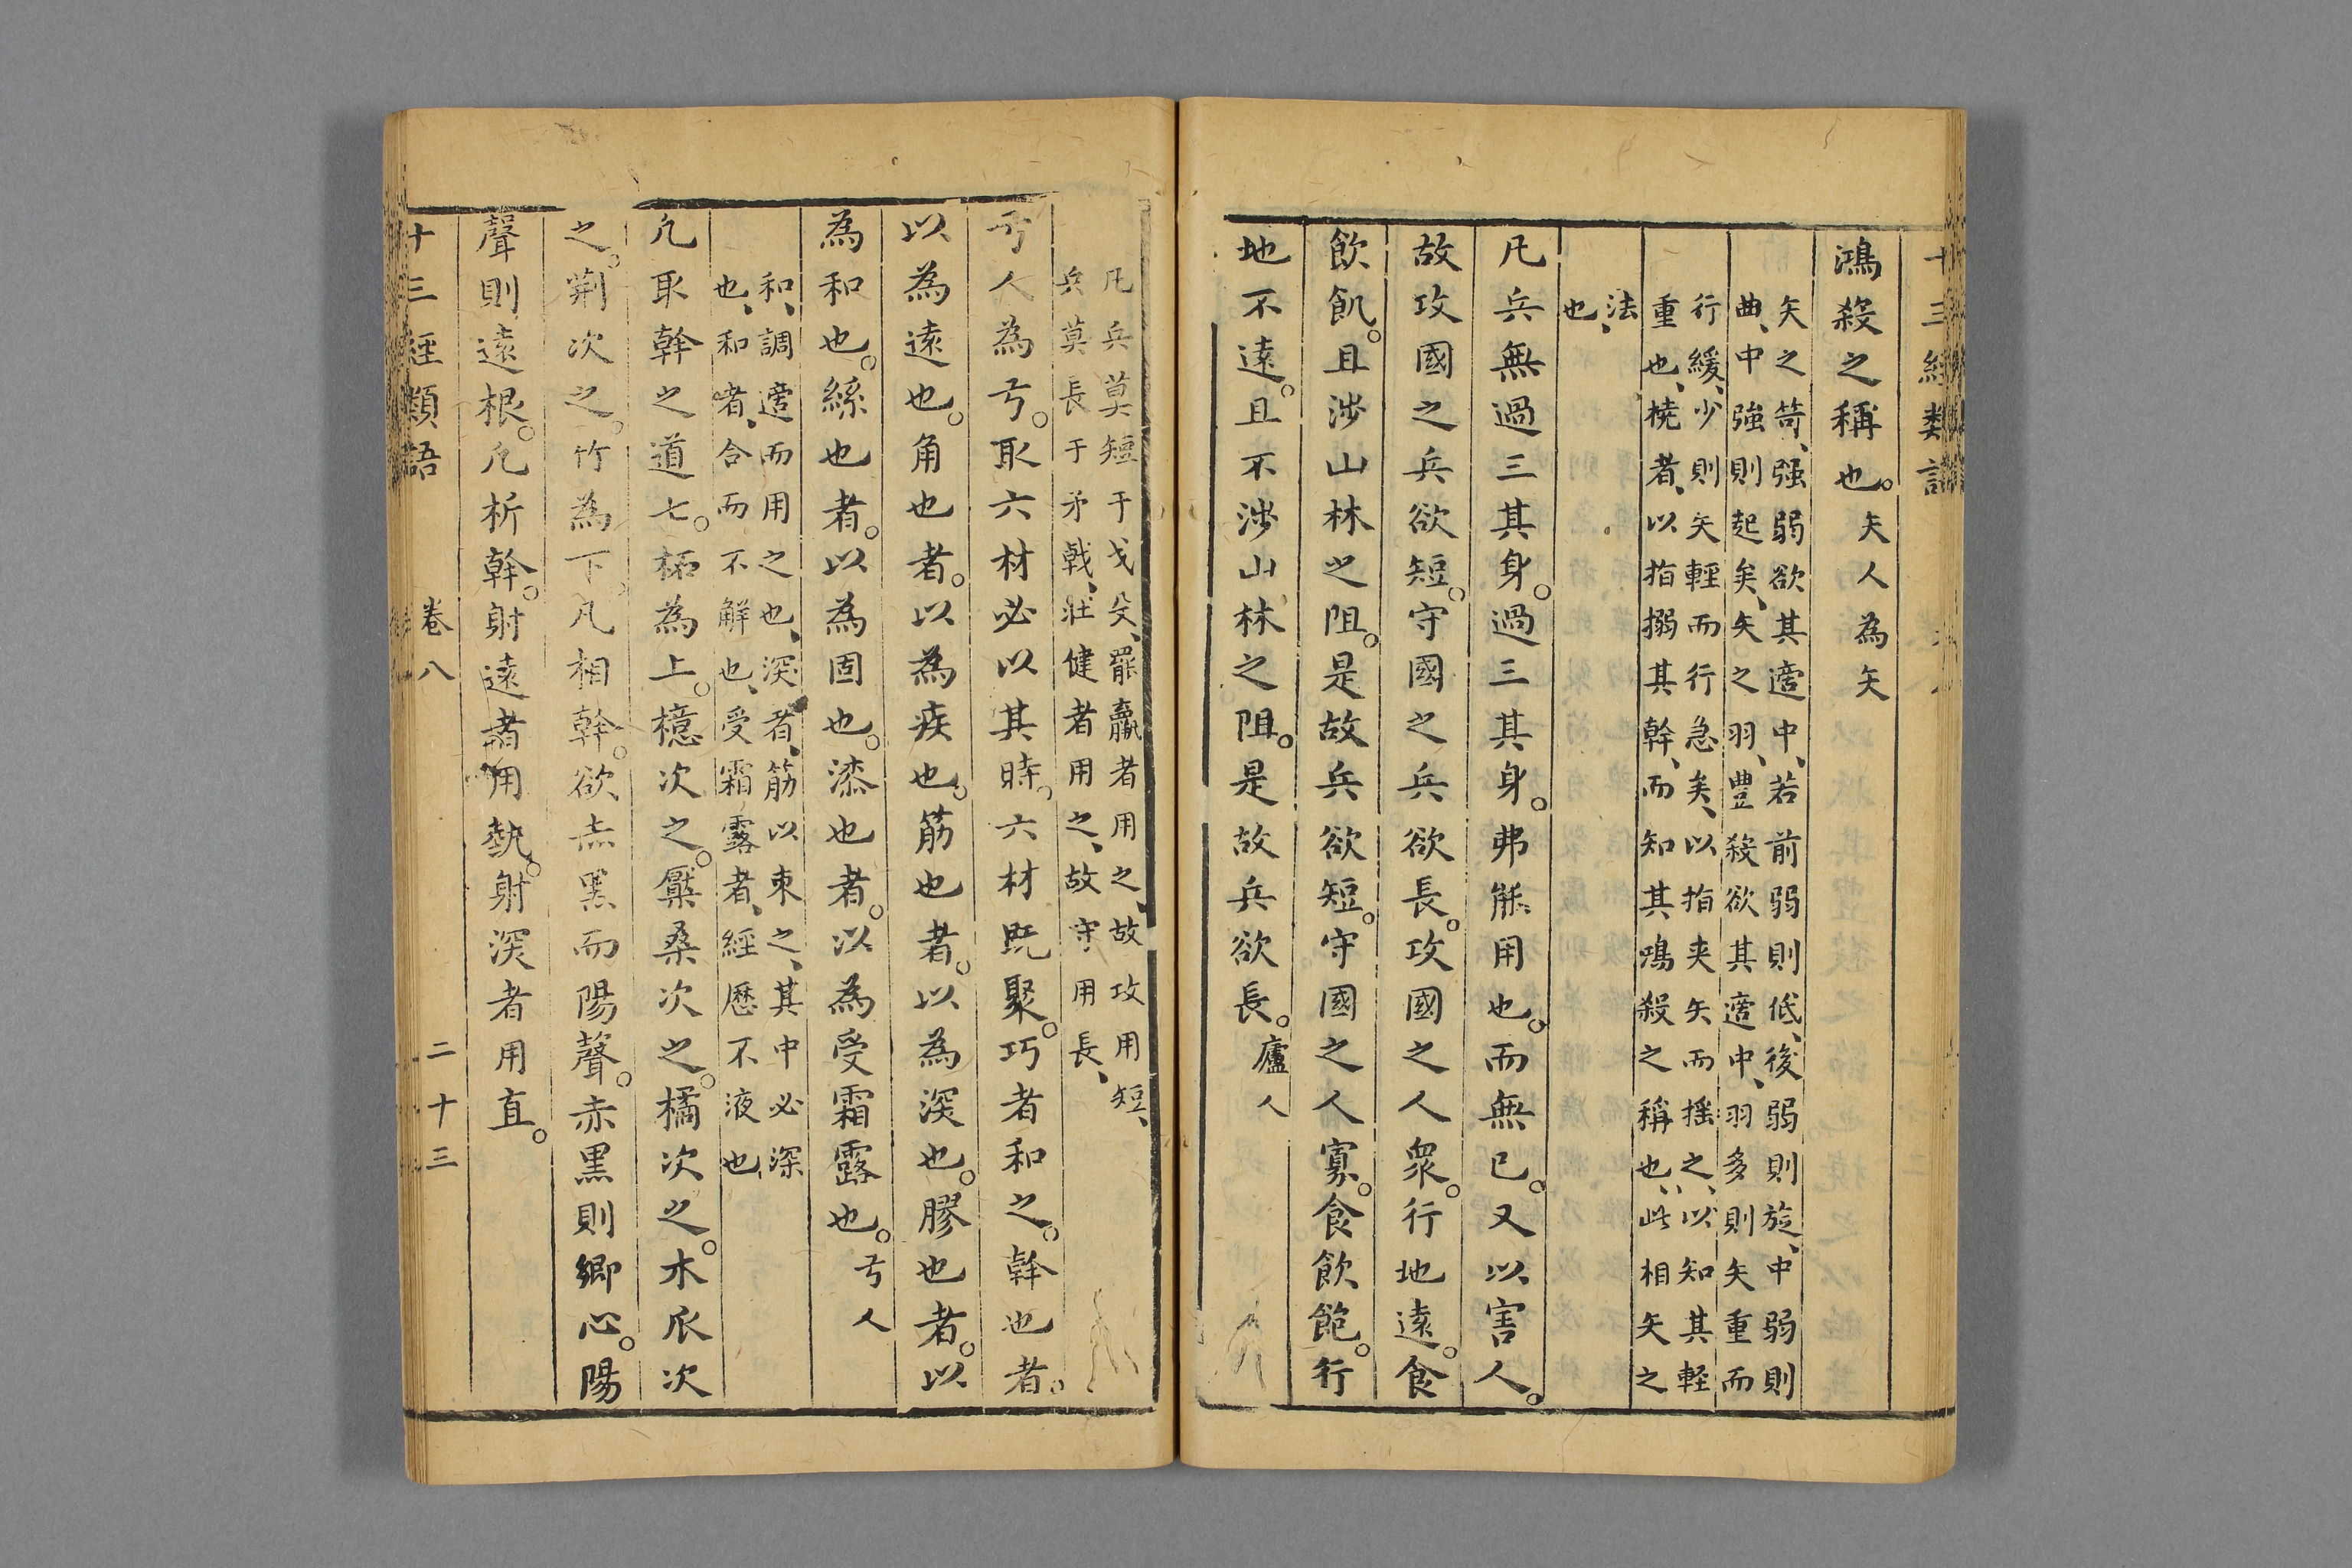 十三經類語
鴻殺之稱也。矢人為矢
矢之笴、强弱欲其適中、若前弱則低、後弱則旋、中弱則
曲、中強則起矣、矢之羽、豐殺欲其適中、羽多則矢重而
行緩、少則矢輕而行急矣、以指夹矢而摇之、以知其輕
重也、橈者、以指搦其幹、而知其鴻殺之稱也、此相矢之
法
也、
凡兵無過三其身。過三其身。弗能用也。而無已。又以害人。
故攻國之兵欲短。守國之兵欲長。攻國之人衆。行地遠。食
飲飢。且涉山林之阻。是故兵欲短。守國之人寡。食飲飽。行
地不遠。且不涉山林之阻。是故兵欲長。廬人
凡兵莫短于戈殳、罷羸者用之、故攻用短、
兵莫長于矛戟、壮健者用之、故守用長、
弓人為弓。取六材必以其時。六材既聚。巧者和之。幹也者。
以為遠也。角也者。以為疾也。筋也者。以為深也。膠也者。以
為和也。絲也者。以為固也。漆也者。以為受霜露也。弓人
和、調適而用之也、深者、筋以束之、其中必深
也、和者、合而不解也、受霜露者、經歷不液也
凡取幹之道七。柘為上。檍次之。檿桑次之。橘次之。木瓜次
之。荆次之。竹為下。凡相幹。欲赤黑而陽聲。赤黒則鄉心。陽
聲則遠根。凡析幹。射遠者用埶。射深者用直。
十三經類語
卷八
二十三